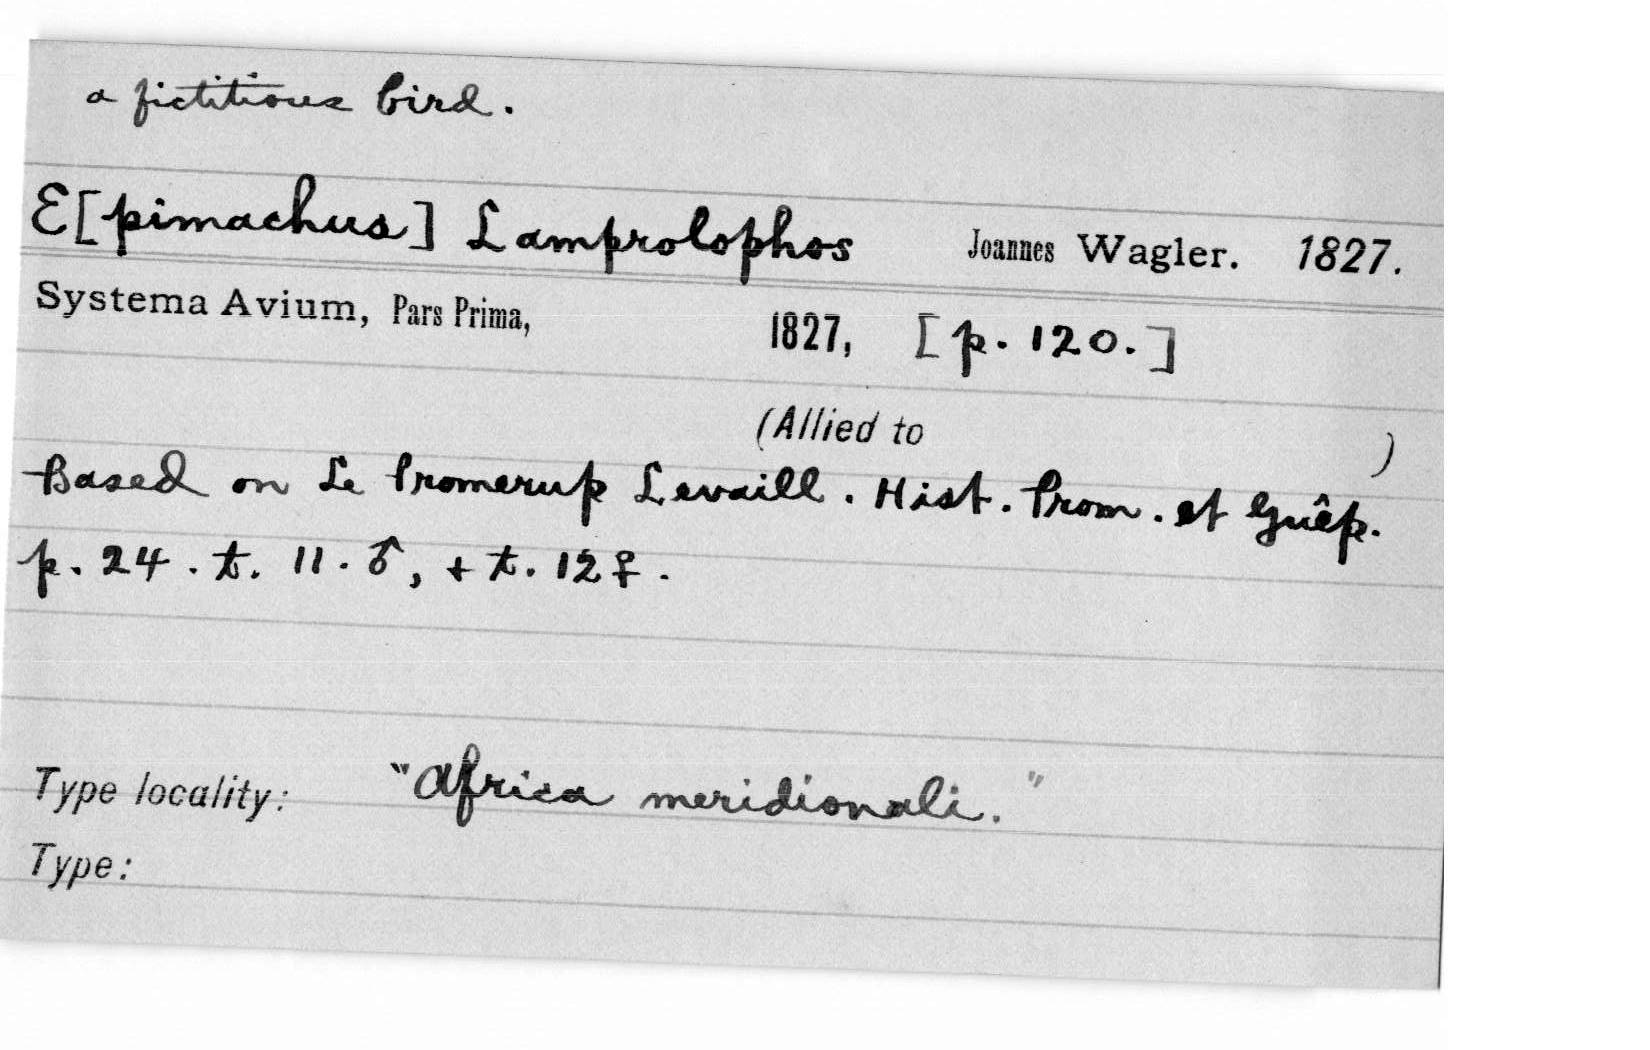 a fictitious bird.
E[pimachus] Lamprolophos Joannes Wagler. 1827.
Systema Avium, Pars Prima, 1827, [p. 120.]
(Allied to )
Based on Le Promerup Levaill. Hist. Prom. et Guêp.
p. 24. t. 11. ♂, + t. 12 ♀.
Type locality: "Africa meridionali."
Type: